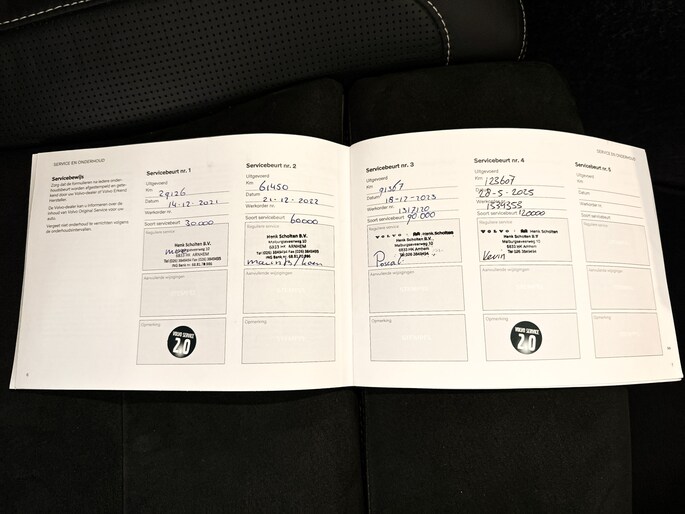 SERVICE EN ONDERHOUD
Servicebewijs
Zorg dat de formulieren na iedere onder-
houdsbeurt worden afgestempeld en gete-
kend door uw Volvo-dealer of Volvo Erkend
Hersteller.
De Volvo-dealer kan u informeren over de
inhoud van Volvo Original Service voor uw
auto.
Vergeet niet onderhoud te verrichten volgens
de onderhoudsintervallen.
Servicebeurt nr. 1
Uitgevoerd
Km 29126
Datum 14-12-2021
Werkorder nr.
Soort servicebeurt 30.000
Reguliere service
Henk Scholten B.V.
6833 HK ARNHEM
Aanvullende wijzigingen
Opmerking
VOLVO SERVICE
2.0
Servicebeurt nr. 2
Uitgevoerd
Km 61450
Datum 21-12-2022
Werkorder nr.
Soort servicebeurt 60000
Reguliere service
Henk Scholten B.V.
Malburgseveerweg 10
6833 HK ARNHEM
Aanvullende wijzigingen
Opmerking
Servicebeurt nr. 3
Uitgevoerd
Km 91367
Datum 18-12-2023
Werkorder nr. 1317120
Soort servicebeurt 90 000
Reguliere service
VOLVO Henk Scholten
Henk Scholten B.V.
Malburgseveerweg 10
6833 HK Arnhem
Pascal
Aanvullende wijzigingen
Opmerking
Servicebeurt nr. 4
Uitgevoerd
Km 123607
Datum 28-5-2025
Werkorder nr.
Soort servicebeurt 120000
Reguliere service
VOLVO
Henk Scholten B.V.
Malburgseveerweg 10
6833 HK Arnhem
Kevin
Aanvullende wijzigingen
Opmerking
VOLVO SERVICE
2.0
SERVICE EN ONDERHOUD
Servicebeurt nr. 5
Uitgevoerd
Km
Datum
Werkorder nr.
Soort servicebeurt
Reguliere service
Aanvullende wijzigingen
Opmerking